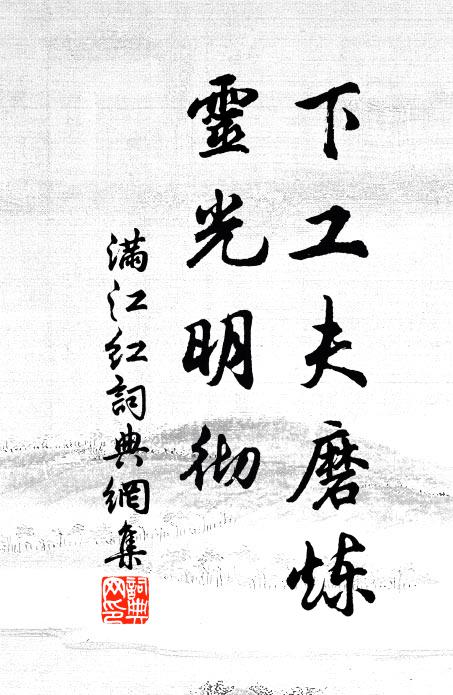 下工夫磨炼
靈光明彻
滿江红詞典網集
詞典网印